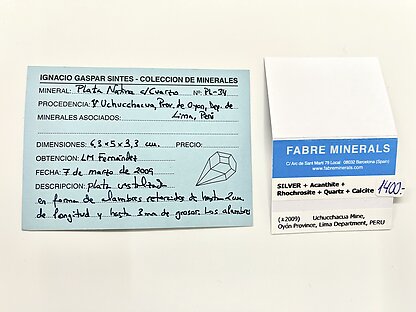 IGNACIO GASPAR SINTES - COLECCION DE MINERALES
MINERAL: Plata Nativa c/Cuarzo Nº: PL-34
PROCEDENCIA: Uchucchacua, Prov. de Oyon, Dep. de
MINERALES ASOCIADOS: Lima, Perú
DIMENSIONES: 6,3 x 5 x 3,3 cm. PRECIO:
OBTENCION: LM Fernández
FECHA: 7 de marzo de 2009
DESCRIPCION: plata cristalizada
en forma de alambres retorcidos de hasta 2 cm.
de longitud y hasta 3 mm de grosor. Los alambres
FABRE MINERALS
C/Arc de Sant Martí 79-Local 08032 Barcelona (Spain)
www.fabreminerals.com
SILVER + Acanthite +
Rhochrosite + Quartz + Calcite 1400-
(±2009) Uchucchacua Mine,
Oyón Province, Lima Department, PERU